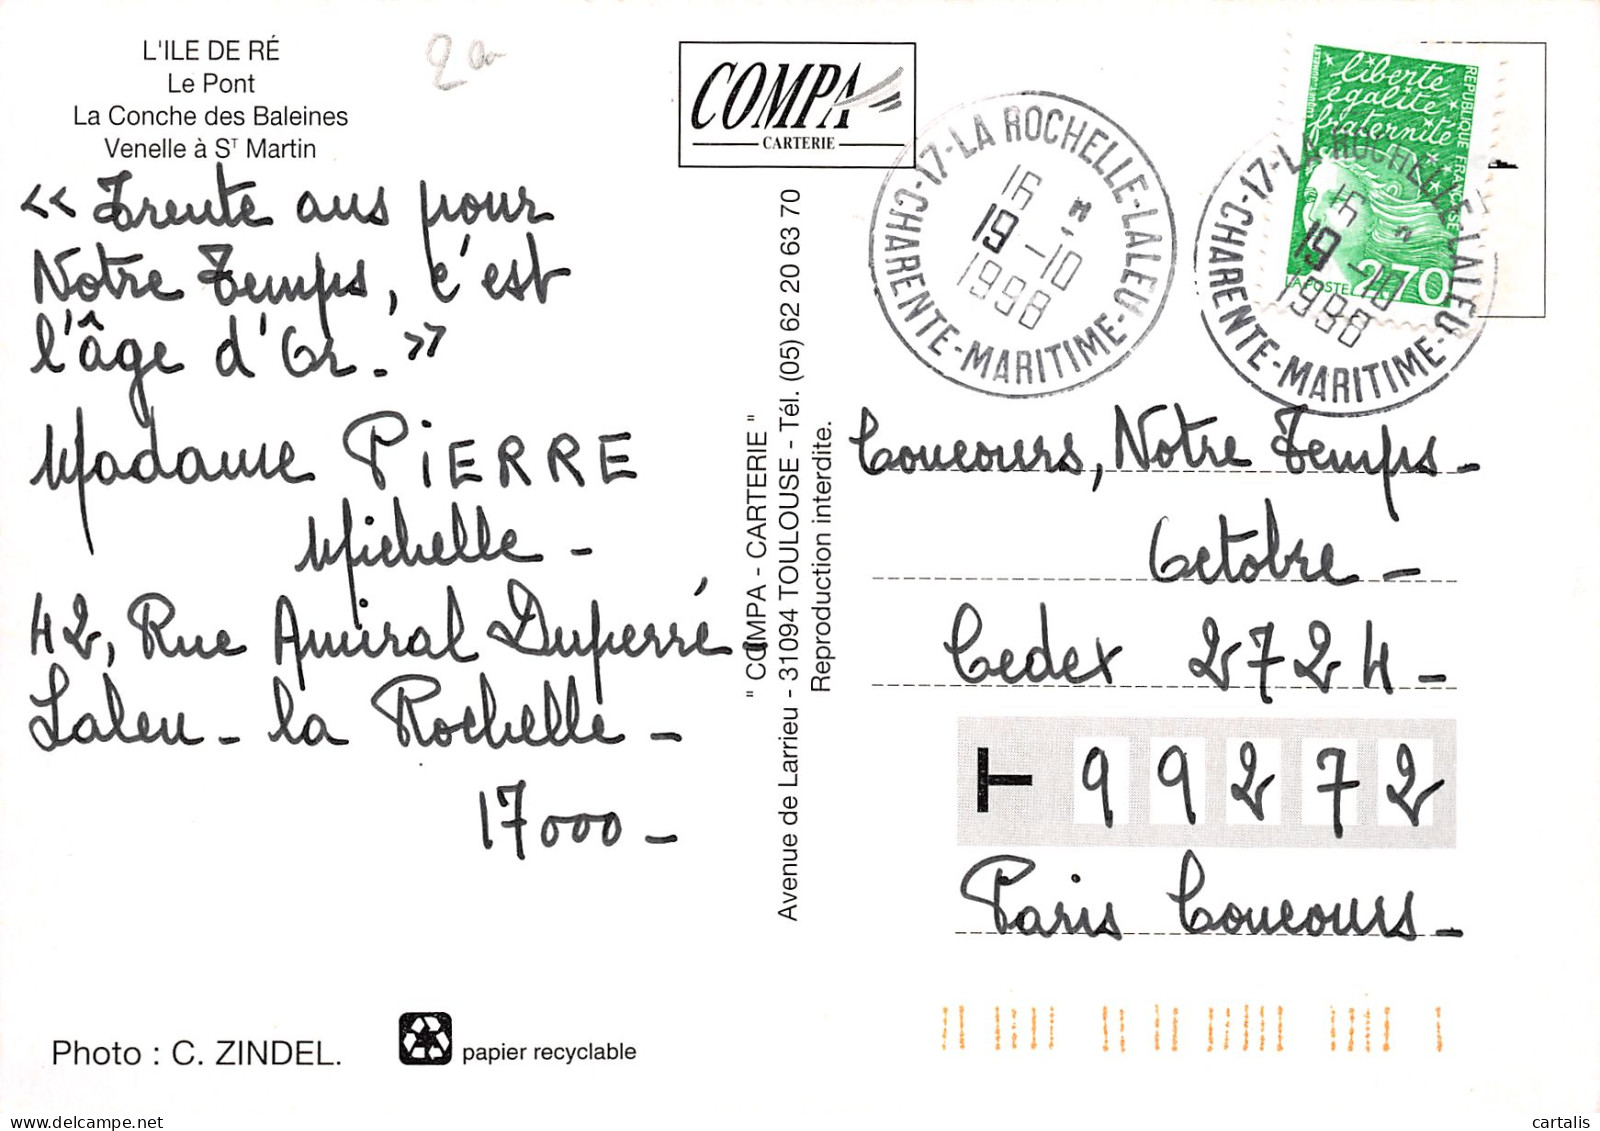 L'ILE DE RÉ
Le Pont
La Conche des Baleines
Venelle à Sᵀ Martin
« Trente ans pour
Notre Temps, c'est
l'âge d'Or. »
Madame PiERRE
Michelle -
42, Rue Amiral Duperré
Laleu - la Rochelle -
17000 -
Photo : C. ZINDEL.
papier recyclable
COMPA
CARTERIE
" COMPA - CARTERIE "
Avenue de Larrieu - 31094 TOULOUSE - Tél. (05) 62 20 63 70
Reproduction interdite.
17-LA ROCHELLE-LALEU
CHARENTE-MARITIME
16 H
19 -10
1998
liberté
égalité
fraternité
RÉPUBLIQUE FRANÇAISE
LA POSTE 2,70
17-LA ROCHELLE-LALEU
CHARENTE-MARITIME
16 H
19 -10
1998
Concours, Notre Temps -
Octobre -
Cedex 2724 -
T 99272
Paris Concours -
cartalis
delcampe.net